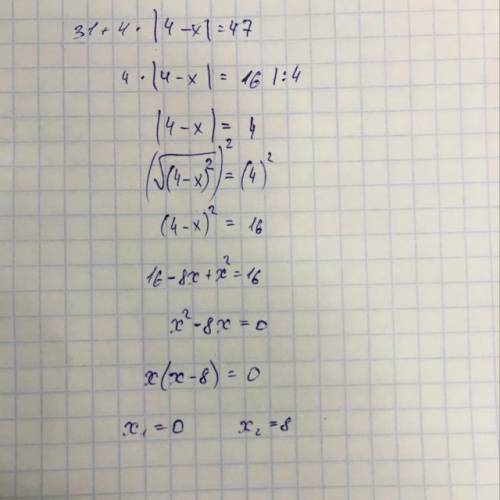 31 + 4 · |4 - x| = 47
4 · |4 - x| = 16 | : 4
|4 - x| = 4
(√(4 - x)²)² = (4)²
(4 - x)² = 16
16 - 8x + x² = 16
x² - 8x = 0
x(x - 8) = 0
x₁ = 0 x₂ = 8